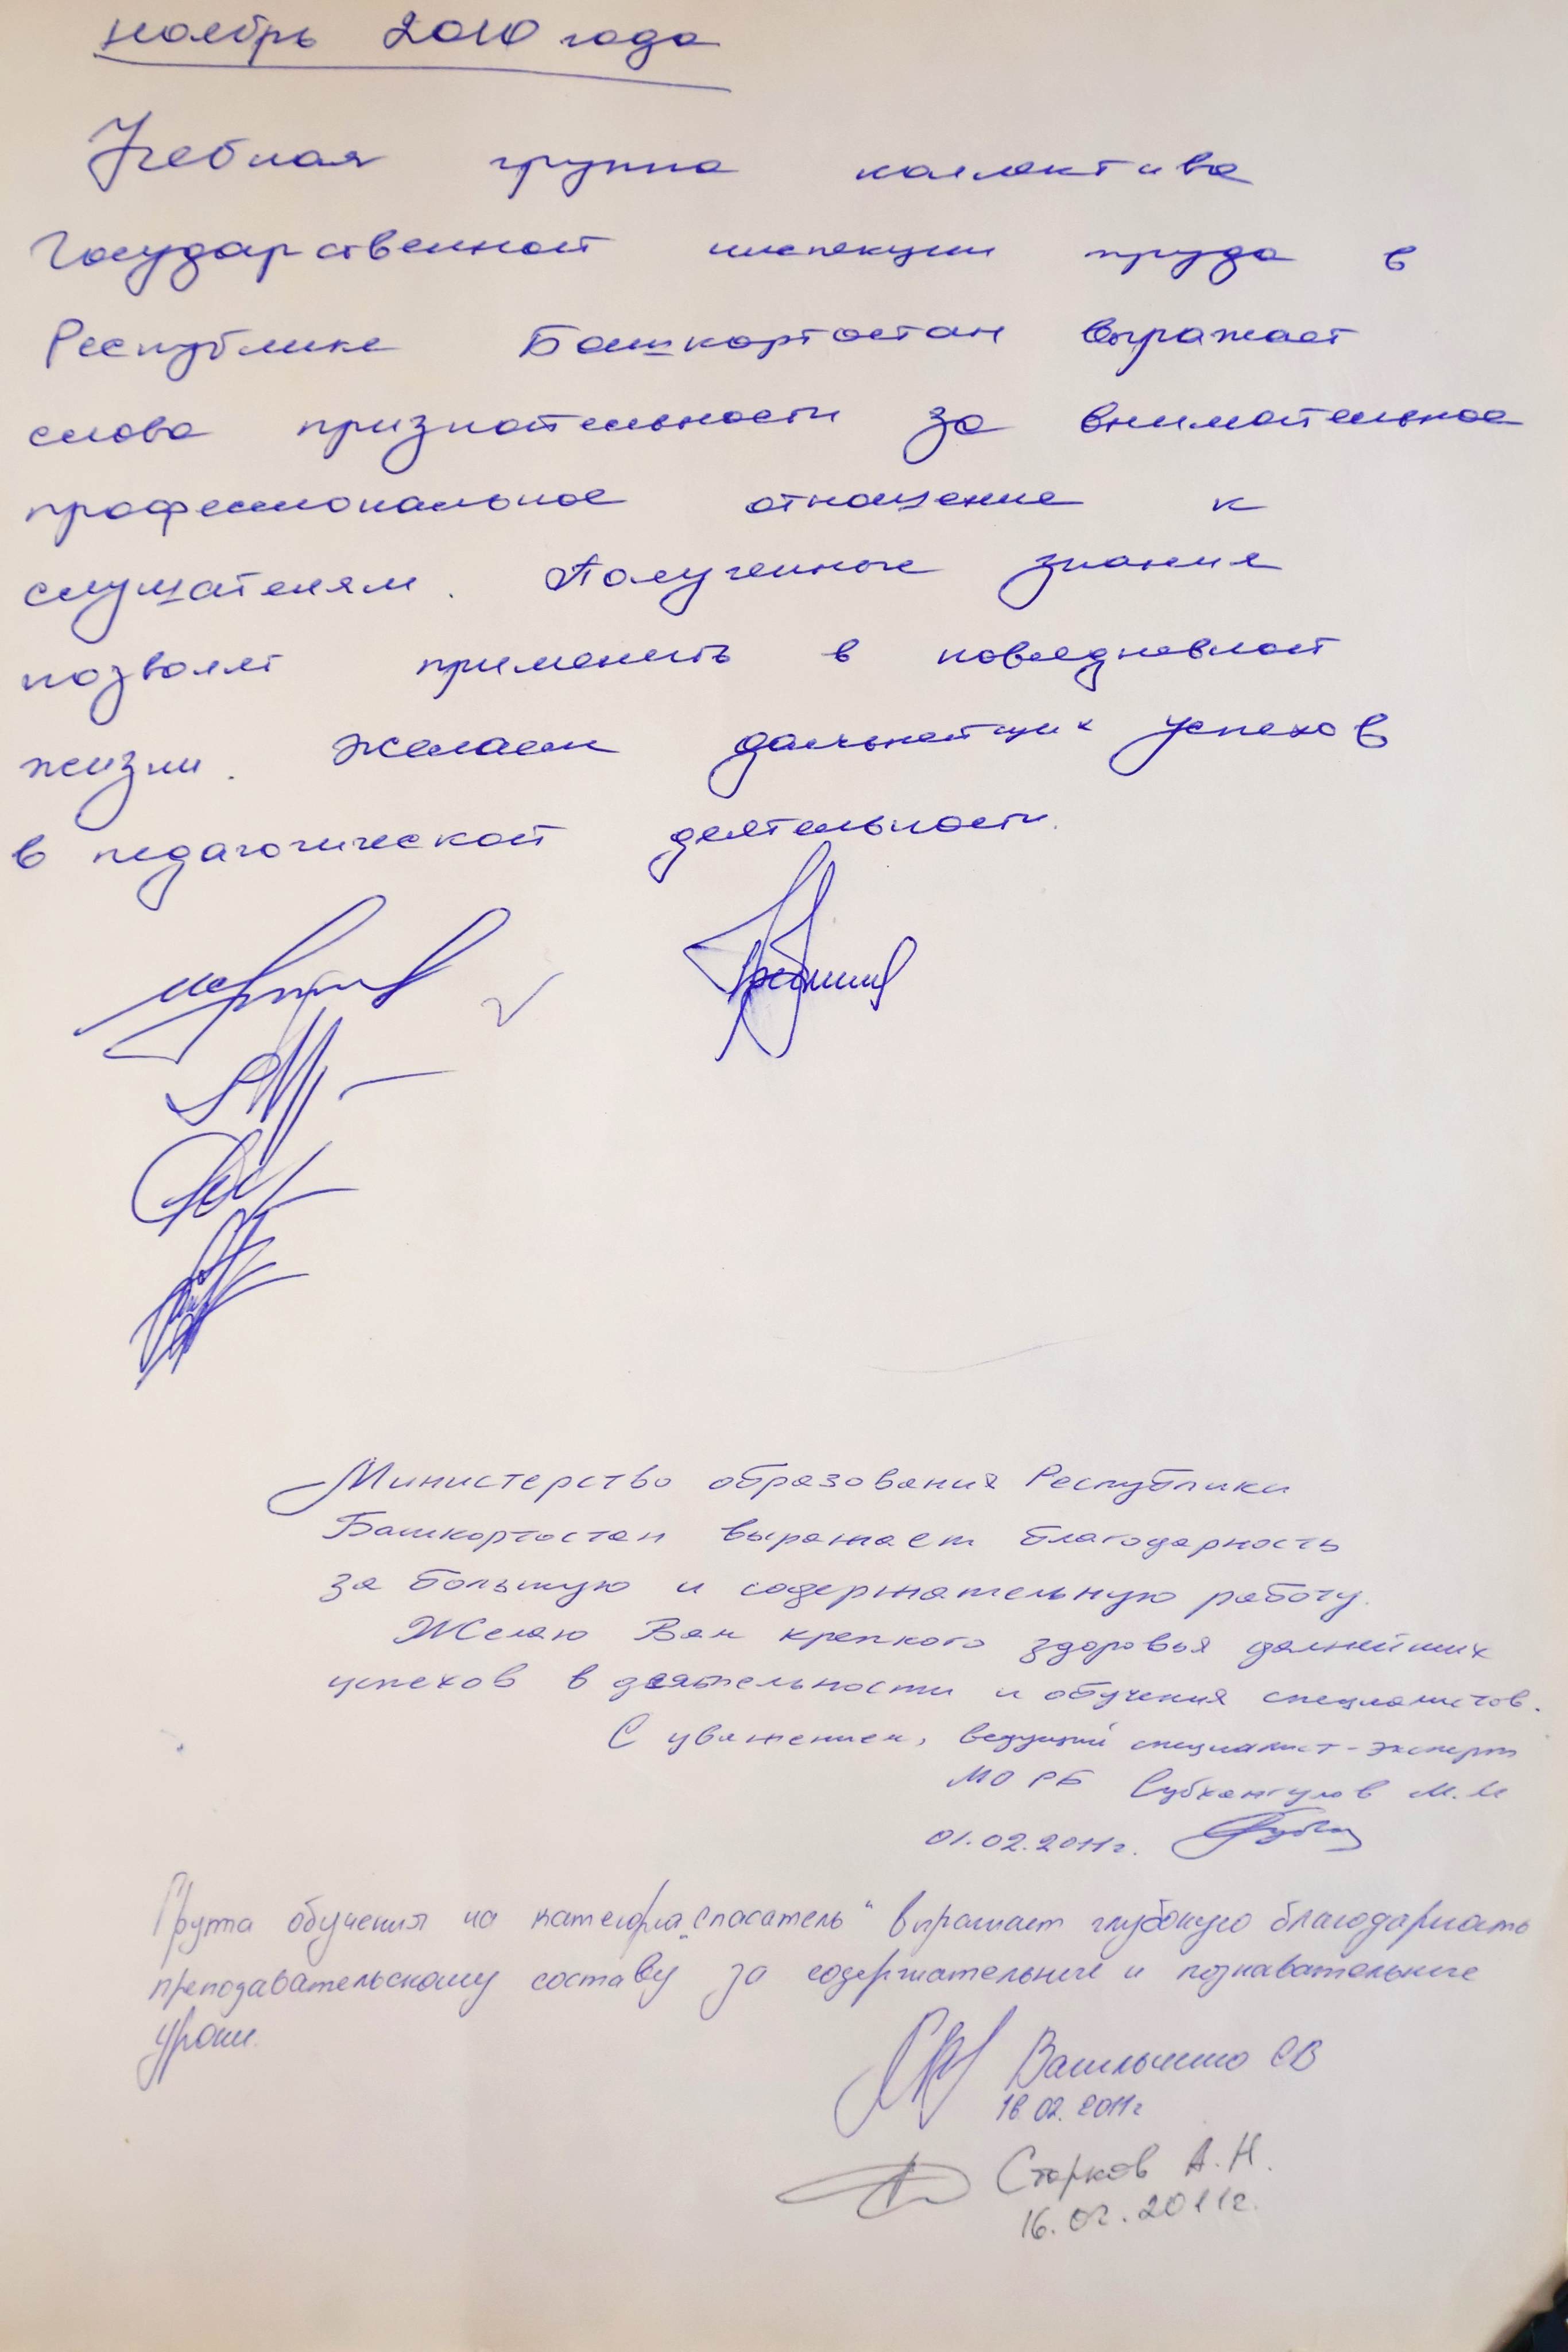 ноябрь 2010 года
Учебная группа коллектива
Государственной инспекции труда в
Республике Башкортостан выражает
слова признательности за внимательное
профессиональное отношение к
слушателям. Полученные знания
позволят применить в повседневной
жизни. Желаем дальнейших успехов
в педагогической деятельности.
Министерство образования Республики
Башкортостан выражает благодарность
за большую и содержательную работу.
Желаю Вам крепкого здоровья далнейших
успехов в деятельности и обучения специалистов.
С уважением, ведущий специалист-эксперт
МО РБ Субхангулов М.М
01.02.2011г.
Группа обучения на категория „Спасатель“ выражает глубокую благодарность
преподавательскому составу за содержательные и познавательные
уроки.
СВ
16.02.2011г
Старков А.Н.
16.02.2011г.